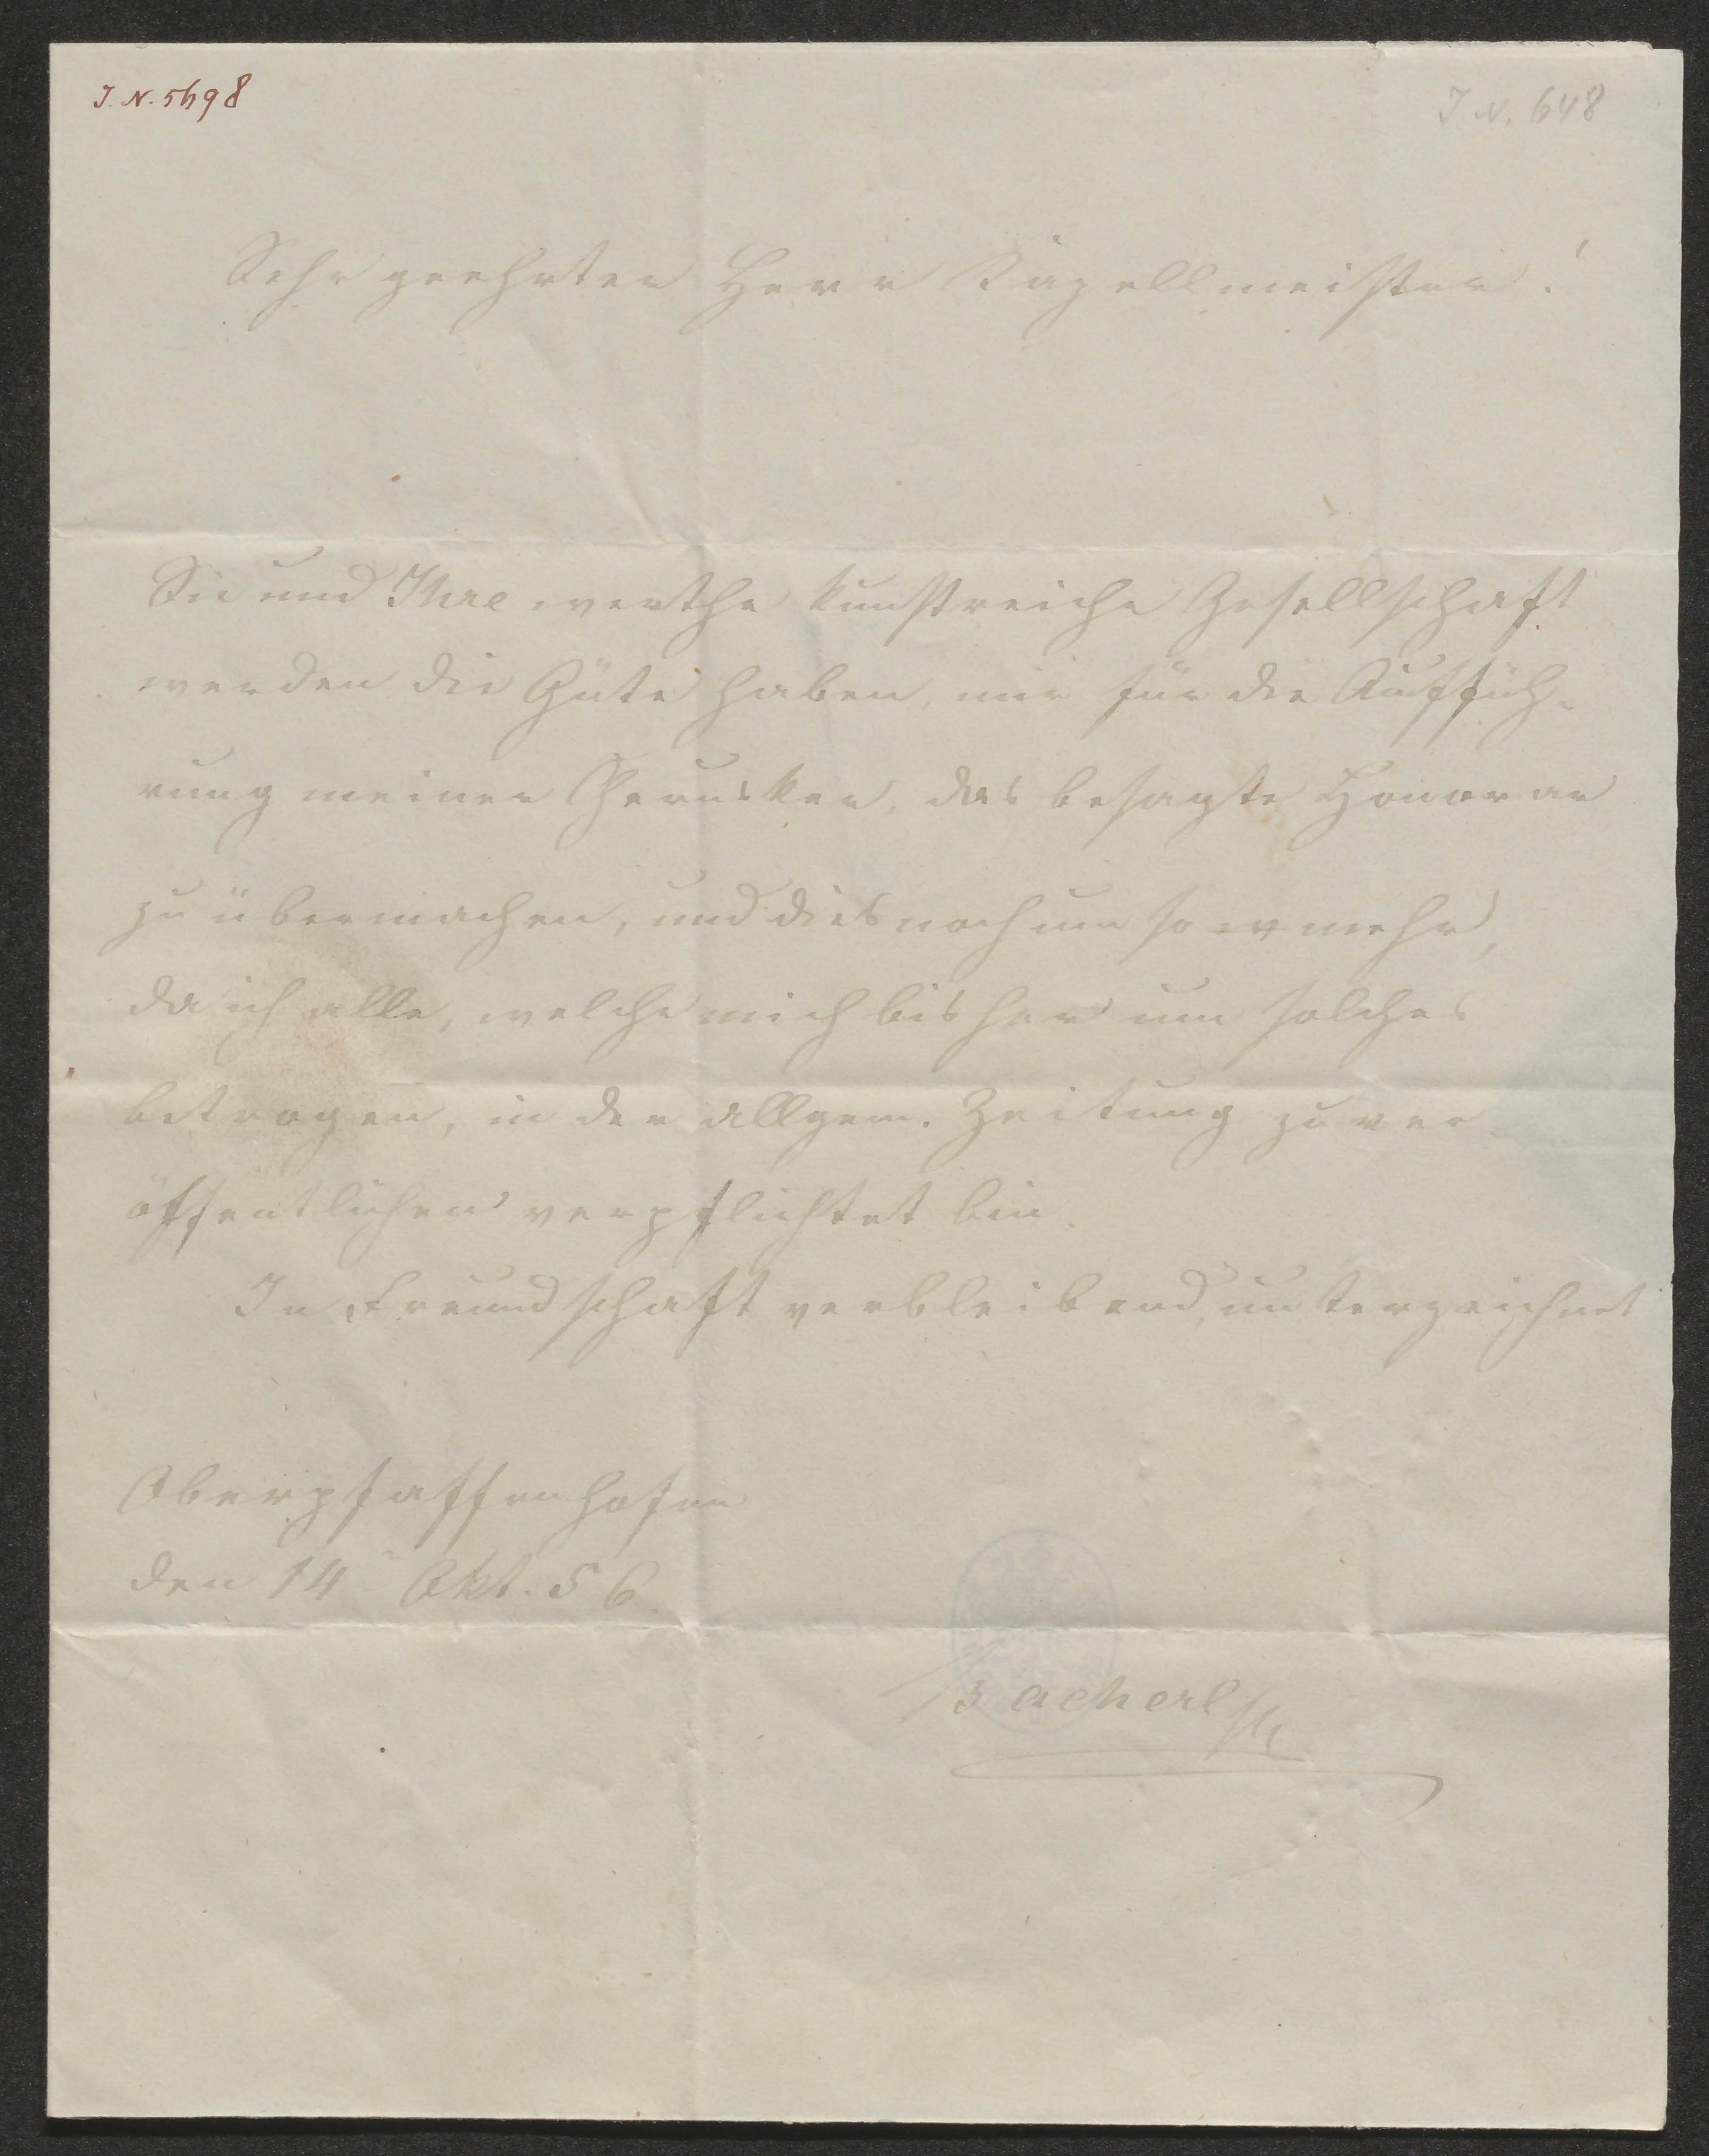 J. N. 5698
J. N. 648
Sehr geehrter Herr Kapellmeister!
Sie und Ihre werthe kunstreiche Gesellschaft
werden die Güte haben, mir für die Auffüh-
rung meiner Cherusker, das besagte Honorar
zu übermachen, und dies noch um so mehr,
da ich alle, welche mich bisher um solches
betrogen, in der allgem. Zeitung zu ver-
öffentlichen verpflichtet bin.
In Freundschaft verbleibend, unterzeichnet
Oberpfaffenhofen
den 14 Okt. 56.
Bacherl